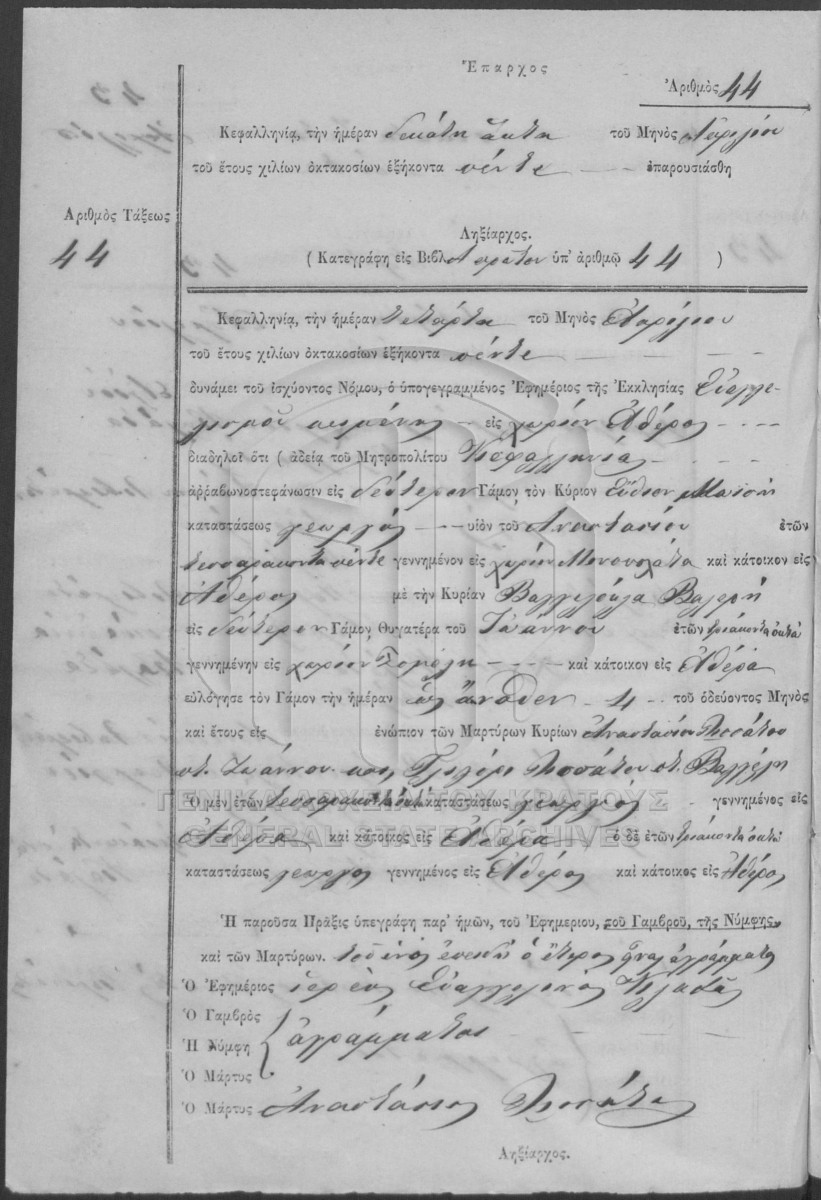 Ἔπαρχος
Ἀριθμὸς 44
Κεφαλληνίᾳ, τὴν ἡμέραν δεκάτη ὄκτη τοῦ Μηνὸς Ἀπριλίου
τοῦ ἔτους χιλίων ὀκτακοσίων ἑξήκοντα πέντε ἐπαρουσιάσθη
Ἀριθμὸς Τάξεως
44
Ληξίαρχος.
( Κατεγράφη εἰς Βιβλ πρῶτον ὑπ' ἀριθμῷ 44 )
Κεφαλληνίᾳ, τὴν ἡμέραν τετάρτη τοῦ Μηνὸς Ἀπριλίου
τοῦ ἔτους χιλίων ὀκτακοσίων ἑξήκοντα πέντε
δυνάμει τοῦ ἰσχύοντος Νόμου, ὁ ὑπογεγραμμένος Ἐφημέριος τῆς Ἐκκλησίας Εὐαγγε-
λισμοῦ κειμένης εἰς χωρίον Ἀθέρας
διαδηλοῖ ὅτι ( ἀδείᾳ τοῦ Μητροπολίτου Κεφαλληνίας
ἀῤῥαβωνοστεφάνωσιν εἰς δεύτερον Γάμον τὸν Κύριον
καταστάσεως γεωργὸς υἱὸν τοῦ Ἀναστασίου ἐτῶν
τεσσαράκοντα πέντε γεννημένον εἰς χωρίον Μονοπολάτα καὶ κάτοικον εἰς
Ἀθέρας μὲ τὴν Κυρίαν Βαγγελοῦλα Βαλερῆ
εἰς δεύτερον Γάμον, Θυγατέρα τοῦ Ἰωάννου ἐτῶν τριάκοντα ὀκτὼ
γεννημένην εἰς χωρίον καὶ κάτοικον εἰς Ἀθέρα
εὐλόγησε τὸν Γάμον τὴν ἡμέραν ὡς ἄνωθεν 4 τοῦ ὁδεύοντος Μηνὸς
καὶ ἔτους εἰς ἐνώπιον τῶν Μαρτύρων Κυρίων Ἀναστασίου
ποτ. Ἰωάννου καὶ ποτ. Βαγγέλη
Ὁ μὲν ἐτῶν τεσσαράκοντα ὀκτὼ καταστάσεως γεωργὸς γεννημένος εἰς
Ἀθέρα καὶ κάτοικος εἰς Ἀθέρα ὁ δὲ ἐτῶν τριάκοντα ὀκτὼ
καταστάσεως γεωργὸς γεννημένος εἰς Ἀθέρας καὶ κάτοικος εἰς Ἀθέρας
ΓΕΝΙΚΑ ΑΡΧΕΙΑ ΤΟΥ ΚΡΑΤΟΥΣ
GENERAL STATE ARCHIVES
Ἡ παροῦσα Πρᾶξις ὑπεγράφη παρ' ἡμῶν, τοῦ Ἐφημερίου, τοῦ Γαμβροῦ, τῆς Νύμφης
καὶ τῶν Μαρτύρων. τοῦ ἑνὸς ἐπειδὴ ὁ ἕτερος ἀγράμματος
Ὁ Ἐφημέριος ἱερεὺς Εὐαγγελινὸς
Ὁ Γαμβρὸς
Ἡ Νύμφη ἀγράμματοι
Ὁ Μάρτυς
Ὁ Μάρτυς Ἀναστάσιος
Ληξίαρχος.